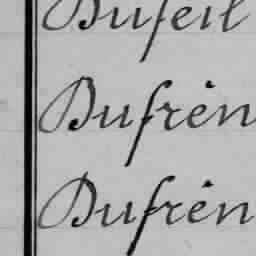 Dufeil
Dufrên
Dufrên